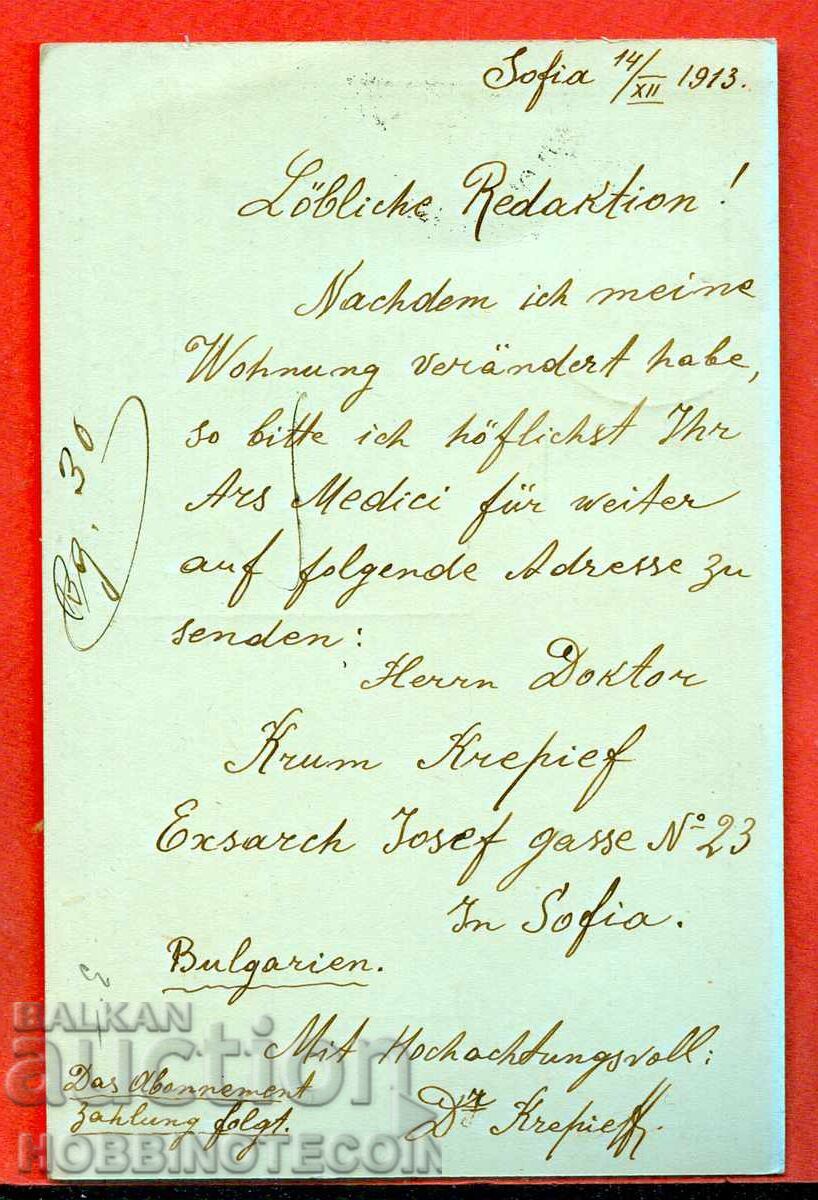 Sofia 14/XII 1913.
Löbliche Redaktion!
Nachdem ich meine
Wohnung verändert habe,
so bitte ich höflichst Ihr
Ars Medici für weiter
auf folgende Adresse zu
senden:
Herrn Doktor
Krum Krepief
Exsarch Josef gasse No 23
In Sofia.
Bulgarien.
Mit Hochachtungsvoll:
Dr Krepieff
Das Abonnement
Zahlung folgt.
Bg. 30
BALKAN
auction
HOBBINOTECOIN